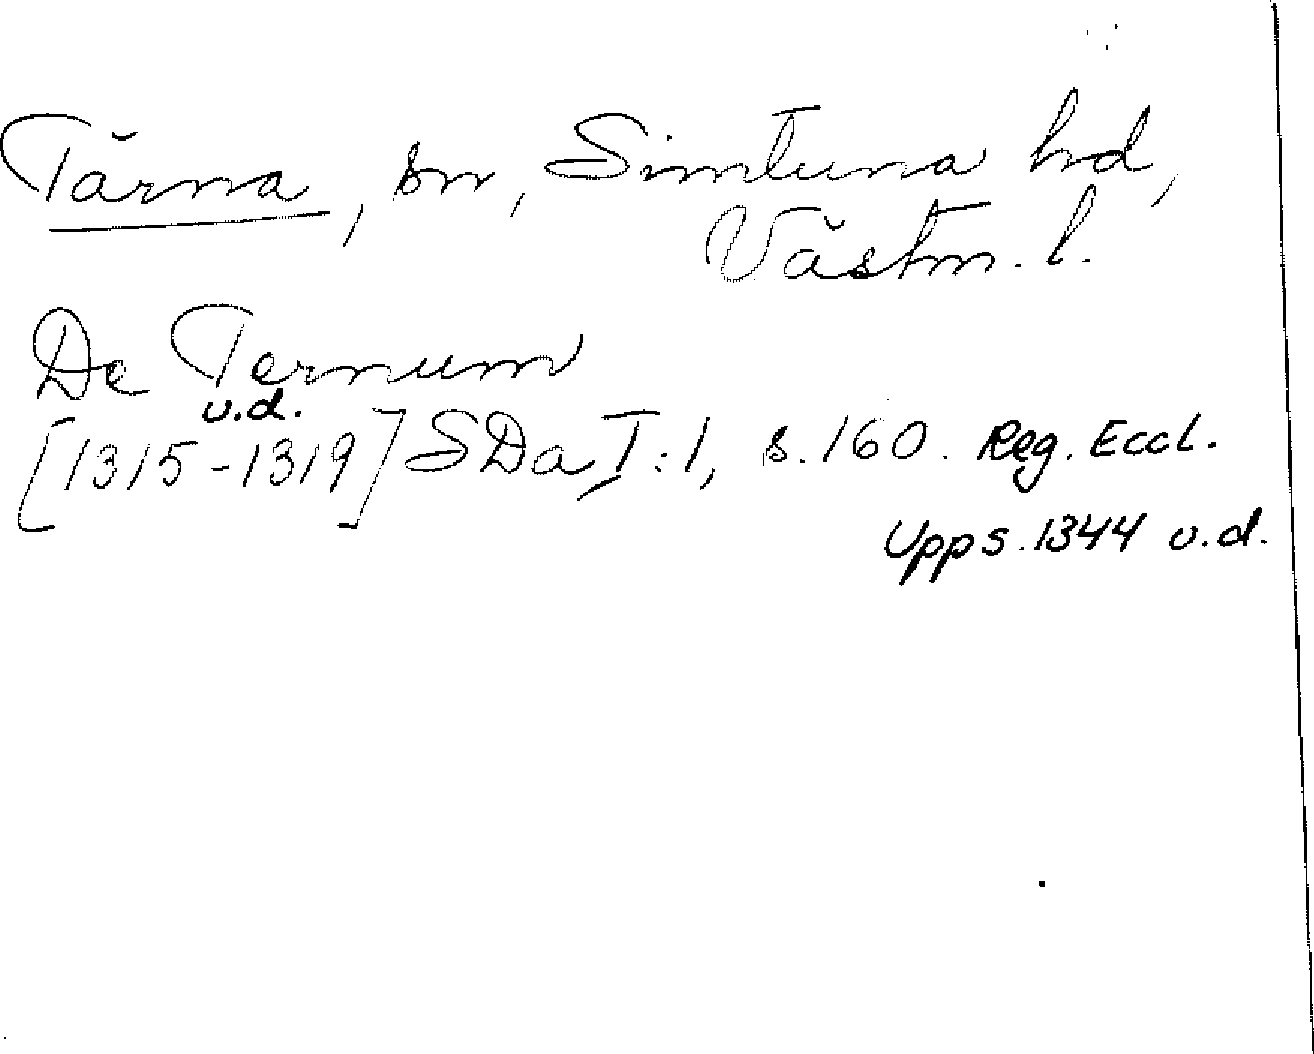 Tärna, sn, Simtuna hd,
Västm. l.
De Ternum
u.d.
[1315-1319] SDa I:1, s. 160. Reg. Eccl.
Upps. 1344 u.d.